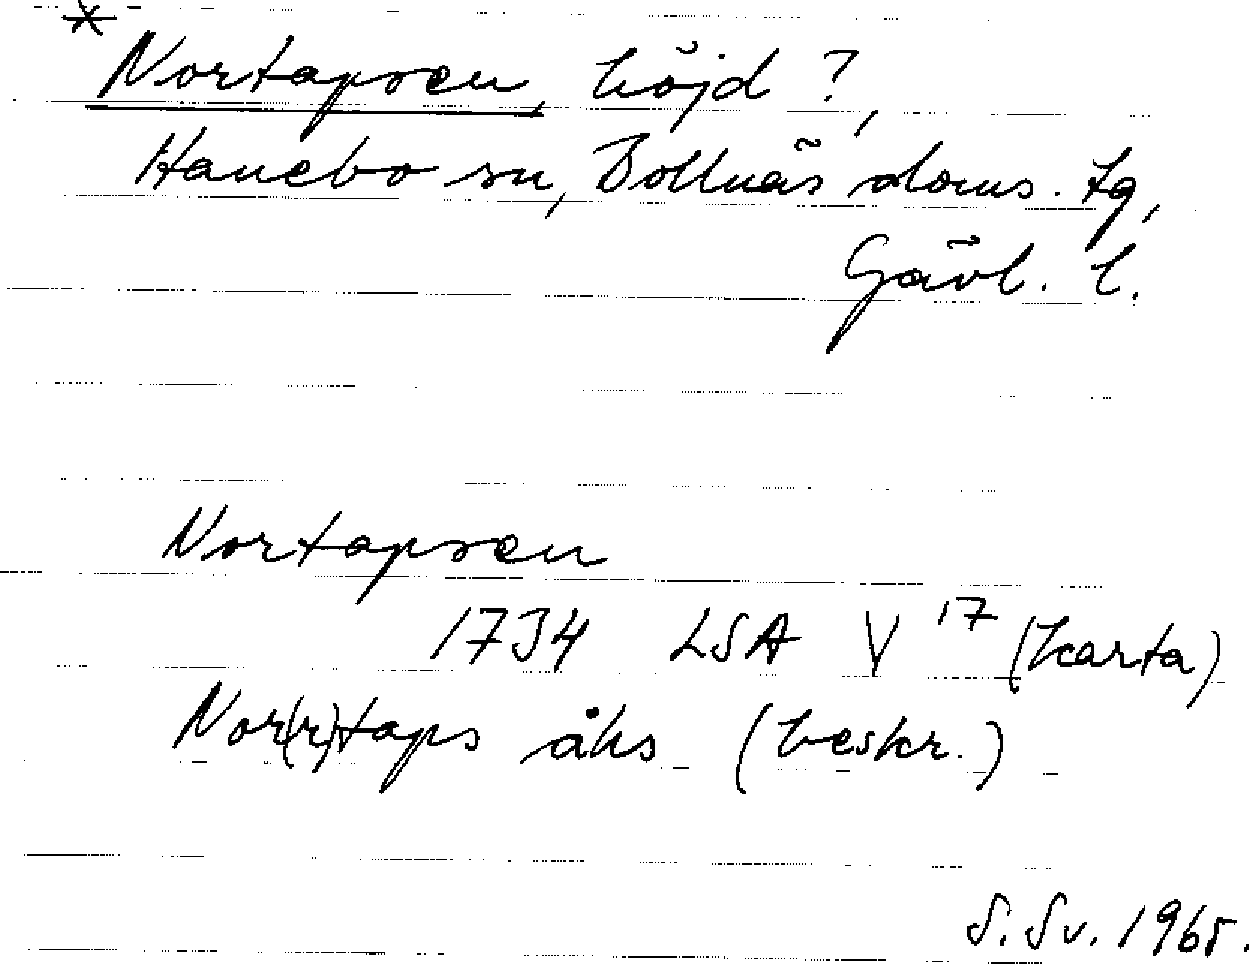 *
Nortapsen, höjd ?,
Hanebo sn, Bollnäs doms. tg,
Gävl. l.
Nortapsen
1734 LSA V 17 (karta)
Nor(r)taps åks (beskr.)
S. Sv. 1965.